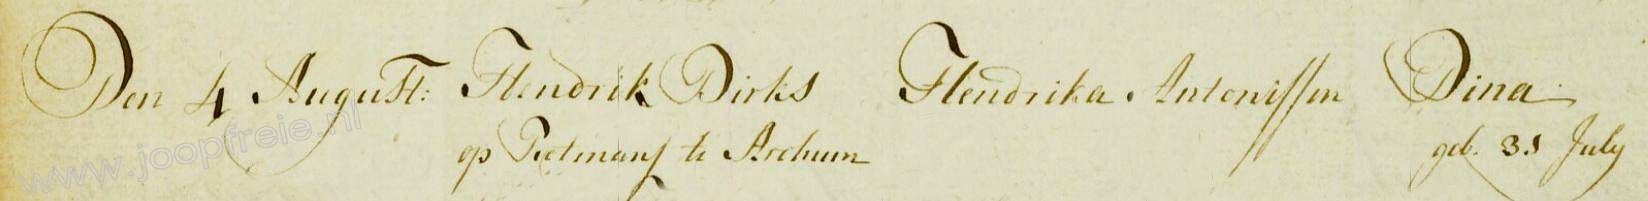 Den 4 August: Hendrik Dirks Hendrika Antonissen Dina
op Rotmans te Archum geb. 31 July
www.joopfreie.nl